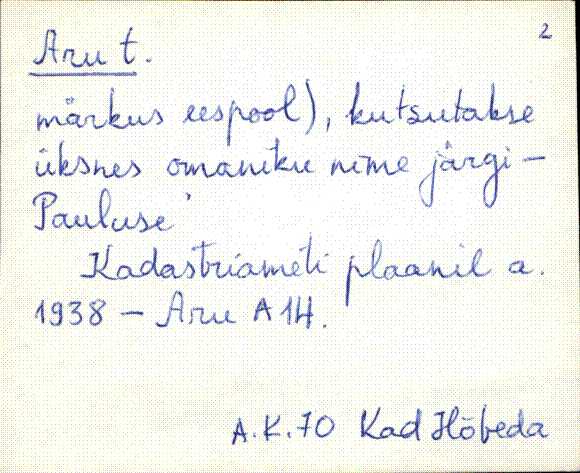 2
Aru t.
märkus eespool), kutsutakse
üksnes omaniku nime järgi -
Pauluse
Kadastriameti plaanil a.
1938 - Aru A 14.
A.K.70 Kad Hõbeda